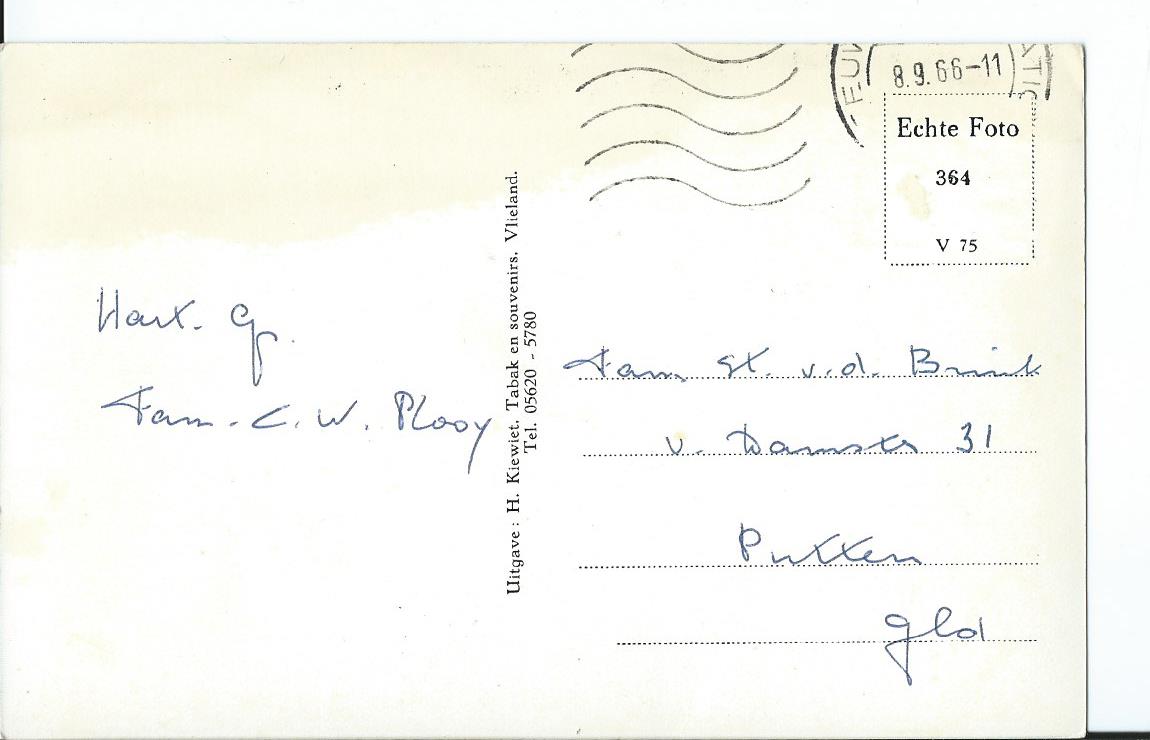 8.9.66-11
Echte Foto
364
V 75
Hart. Gr.
Fam. C. W. Plooy
Uitgave: H. Kiewiet. Tabak en souvenirs. Vlieland.
Tel. 05620 - 5780
Fam. St. v.d. Brink
v. Damstr 31
Putten
Gld